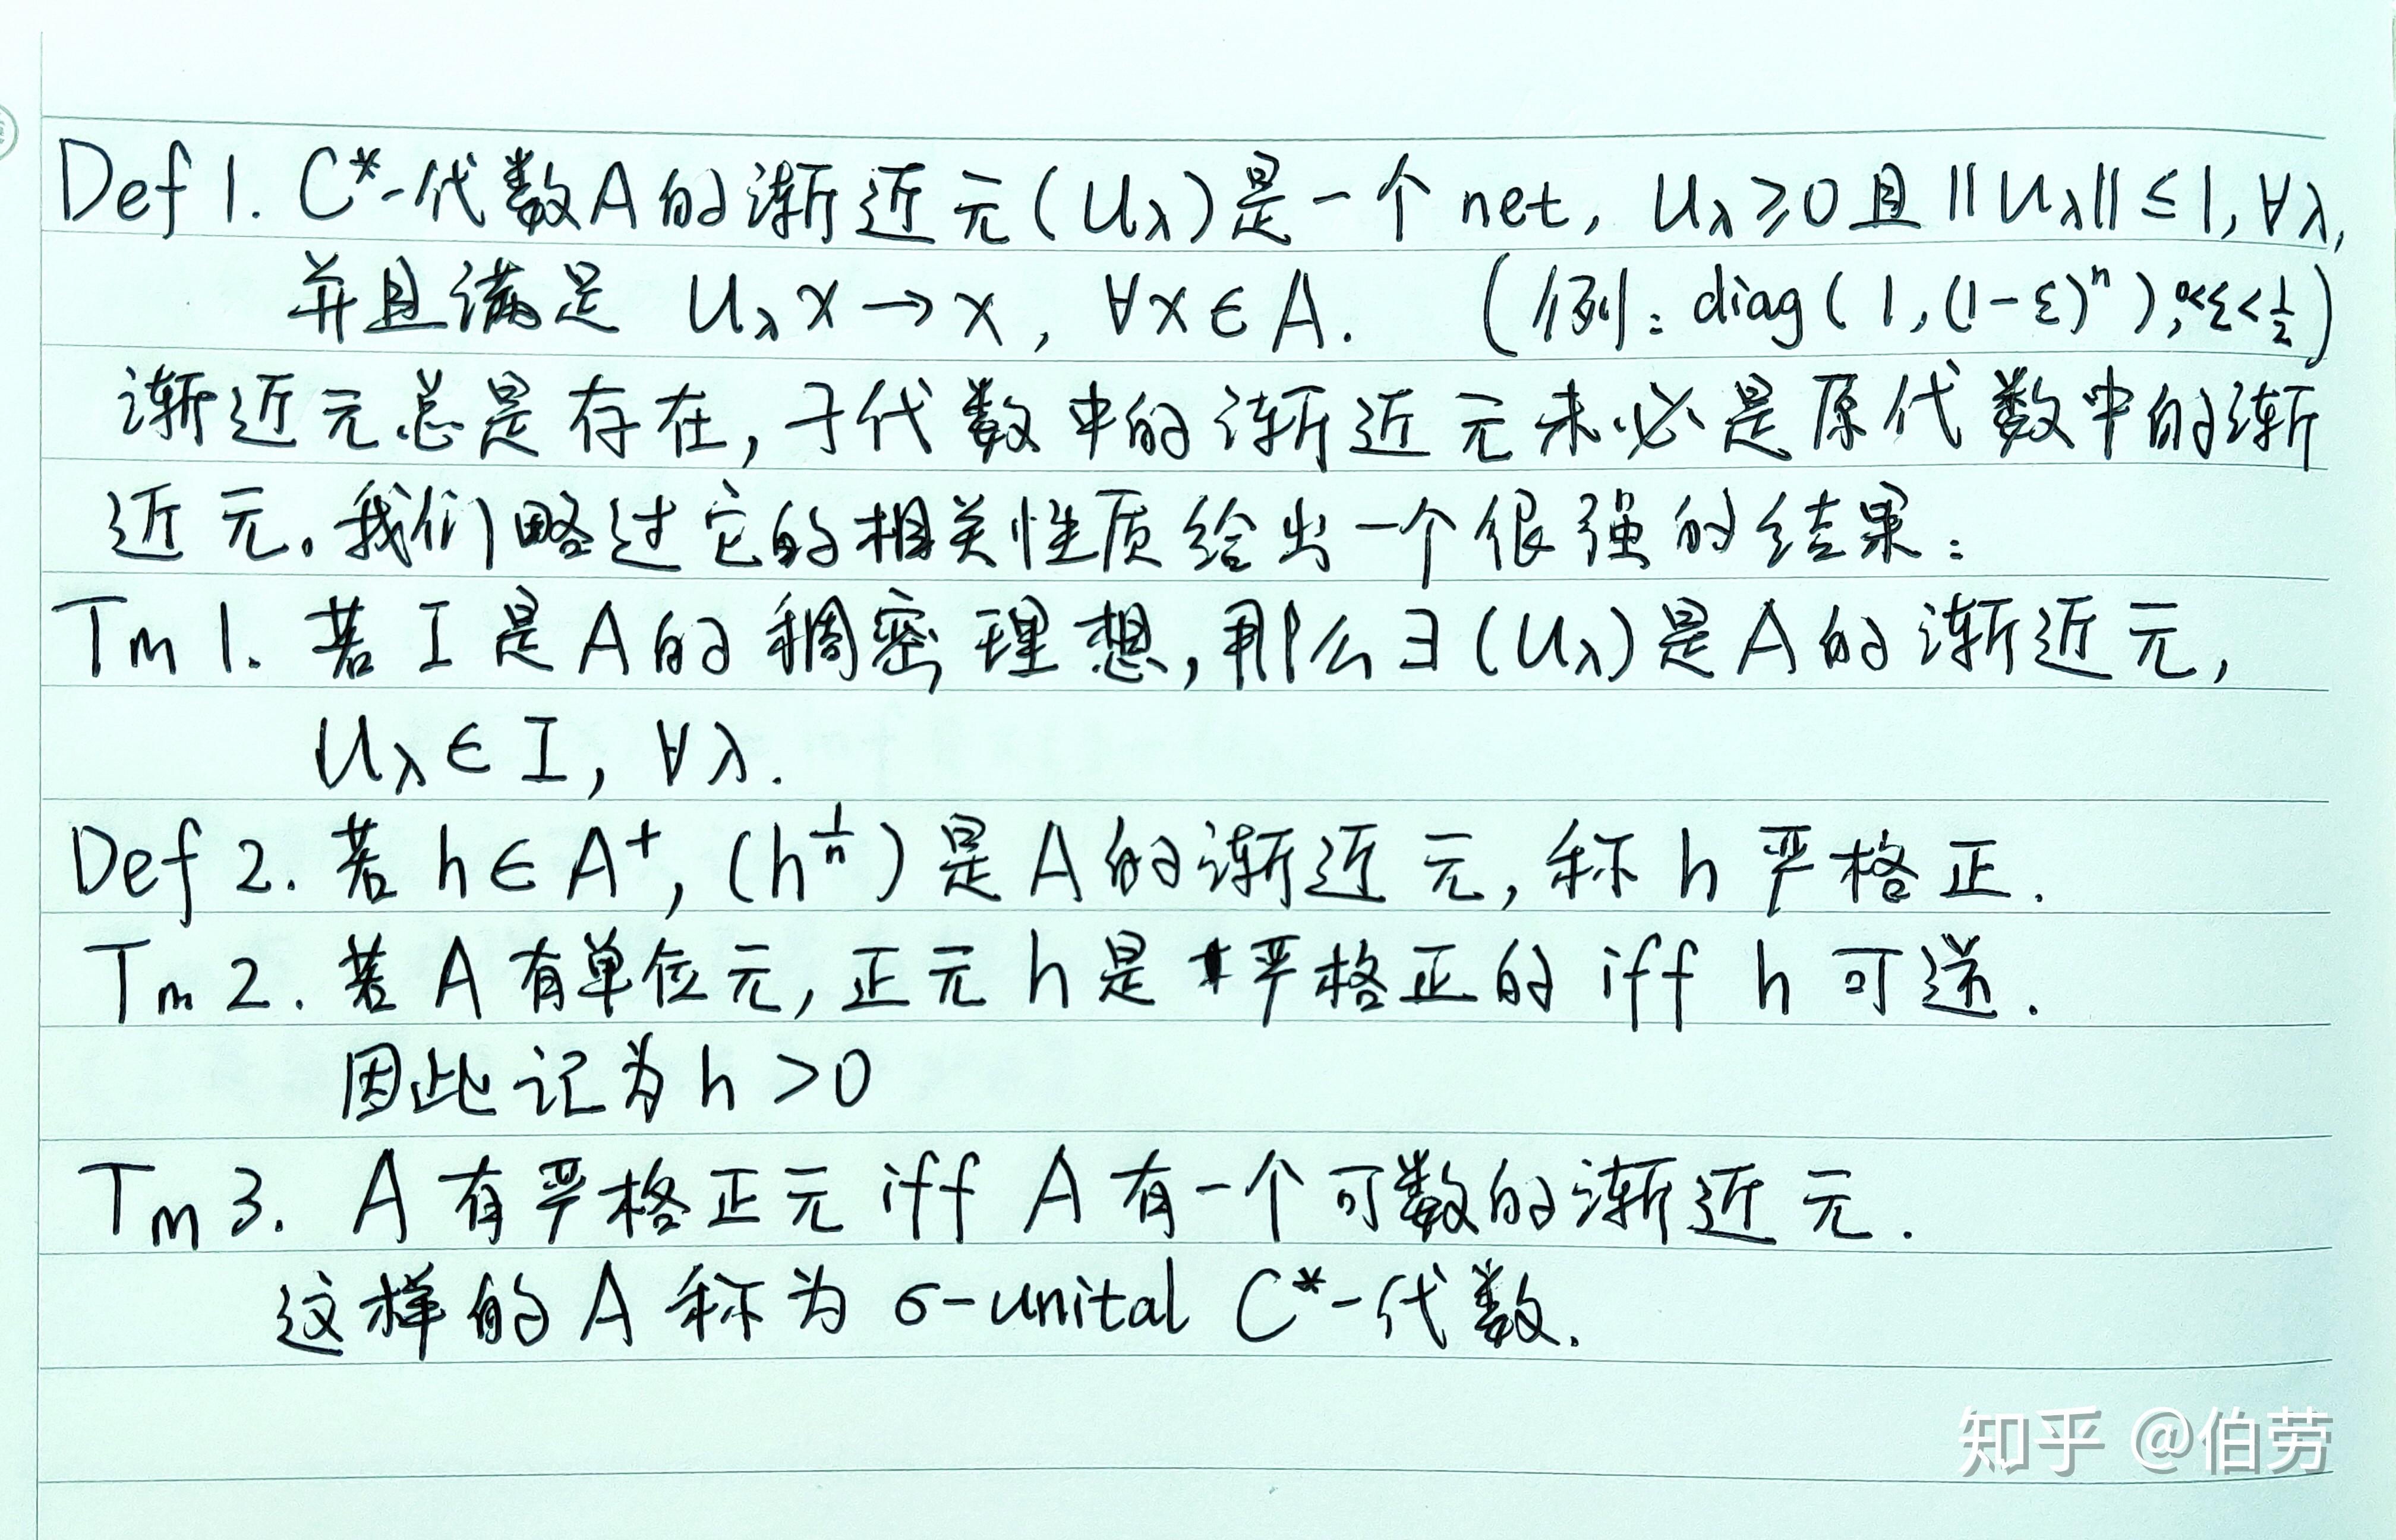 Def 1. C*-代数A的渐近元(Uλ)是一个net, Uλ≥0且‖Uλ‖≤1,∀λ,
并且满足 Uλx→x, ∀x∈A. (例: diag(1,(1-ε)ⁿ), 0<ε<½)
渐近元总是存在,子代数中的渐近元未必是原代数中的渐
近元。我们略过它的相关性质给出一个很强的结果:
Tm 1. 若 I 是 A 的稠密理想,那么∃(Uλ)是A的渐近元,
Uλ∈I, ∀λ.
Def 2. 若 h∈A⁺, (h^{1/n})是A的渐近元,称 h 严格正.
Tm 2. 若 A 有单位元,正元 h 是严格正的 iff h 可逆.
因此记为 h>0
Tm 3. A 有严格正元 iff A 有一个可数的渐近元.
这样的 A 称为 σ-unital C*-代数.
知乎 @伯劳